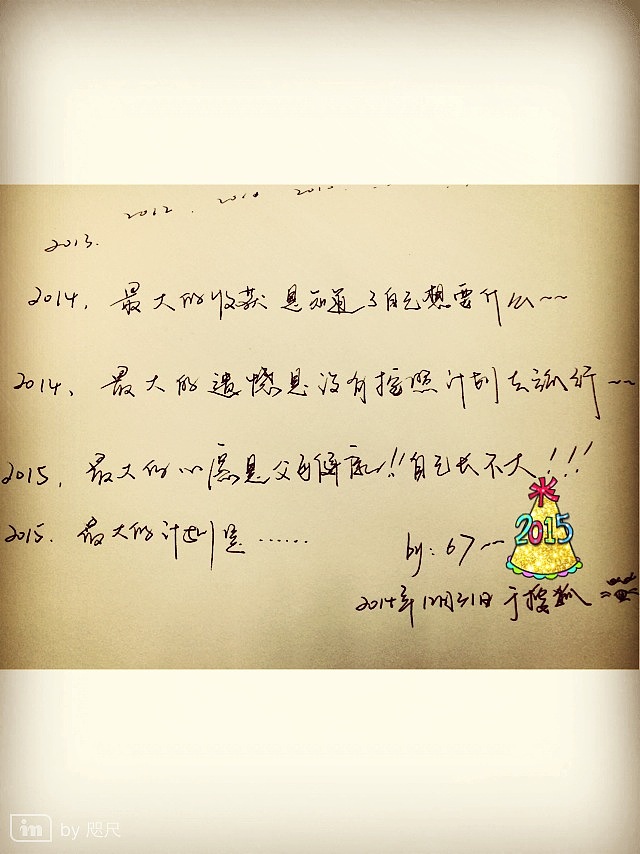 2012. 2010 2013.
2013.
2014, 最大的收获是知道了自己想要什么~~
2014、最大的遗憾是没有按照计划去旅行~~
2015, 最大的心愿是父母健康!!自己长不大!!!
2015. 最大的计划是......
by: 67~~
2015
2014年12月31日 于搜狐
im by 咫尺